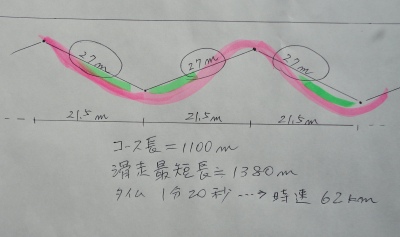 27m 27m 27m
21.5m 21.5m 21.5m
コース長=1100m
滑走最短長≒1380m
タイム 1分20秒…→時速62km